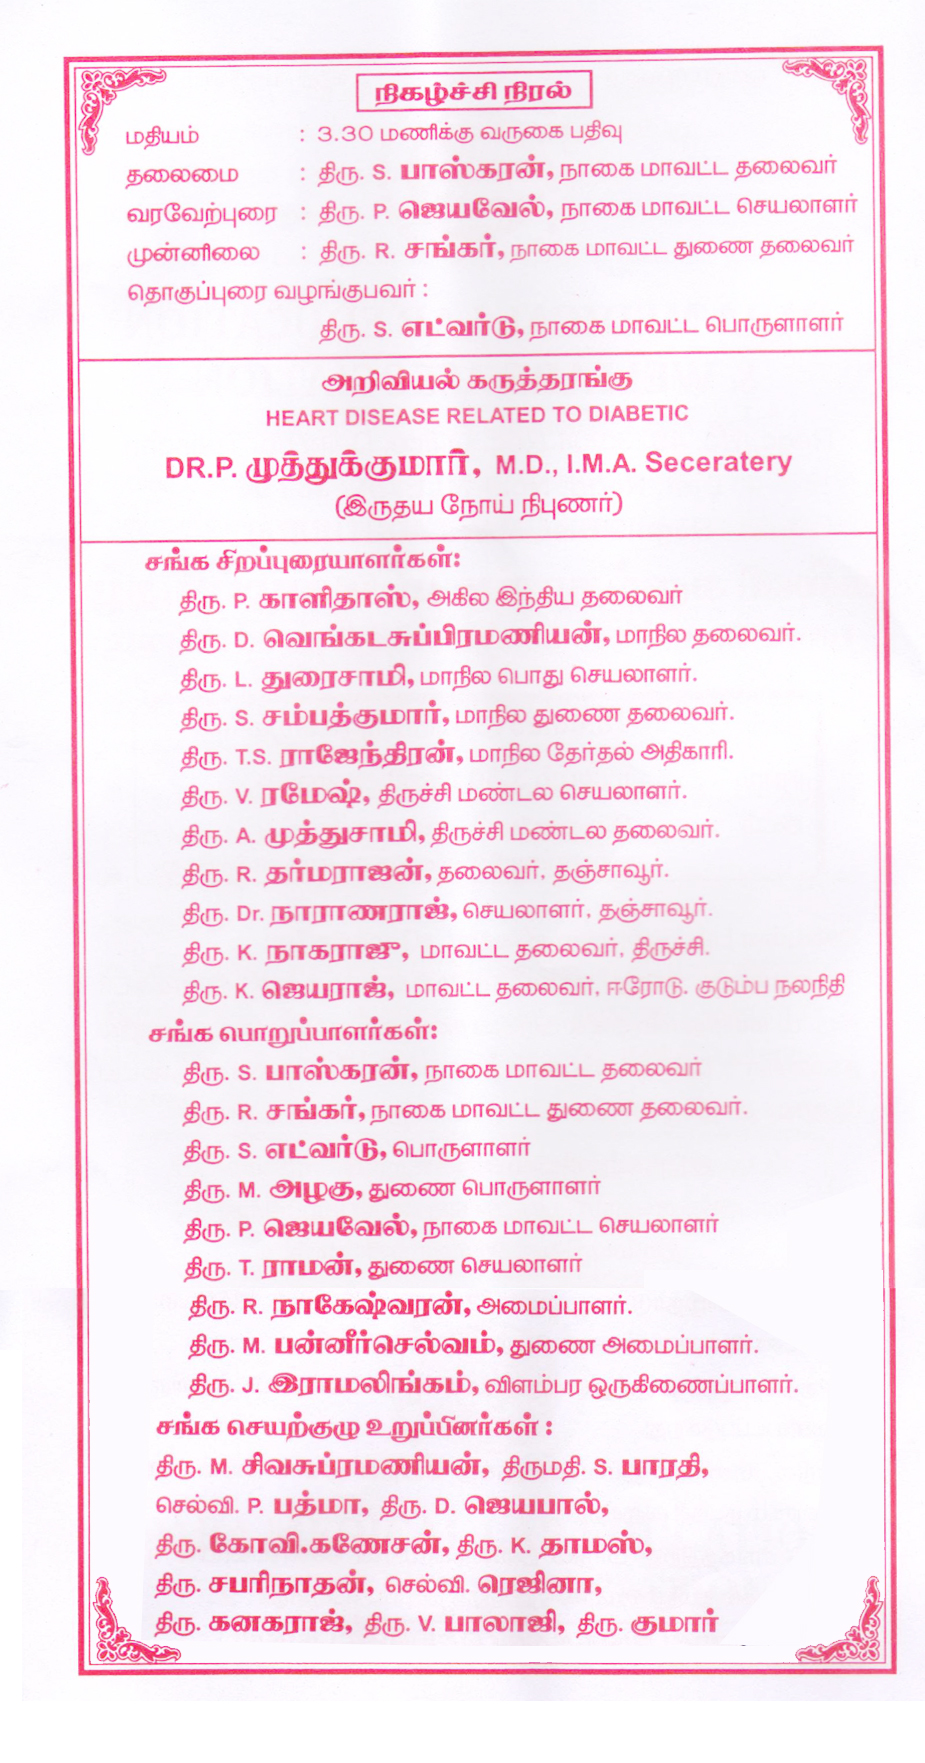 நிகழ்ச்சி நிரல்
மதியம் : 3.30 மணிக்கு வருகை பதிவு
தலைமை : திரு. S. பாஸ்கரன், நாகை மாவட்ட தலைவர்
வரவேற்புரை : திரு. P. ஜெயவேல், நாகை மாவட்ட செயலாளர்
முன்னிலை : திரு. R. சங்கர், நாகை மாவட்ட துணை தலைவர்
தொகுப்புரை வழங்குபவர் :
திரு. S. எட்வர்டு, நாகை மாவட்ட பொருளாளர்
அறிவியல் கருத்தரங்கு
HEART DISEASE RELATED TO DIABETIC
DR.P. முத்துக்குமார், M.D., I.M.A. Seceratery
(இருதய நோய் நிபுணர்)
சங்க சிறப்புரையாளர்கள்:
திரு. P. காளிதாஸ், அகில இந்திய தலைவர்
திரு. D. வெங்கடசுப்பிரமணியன், மாநில தலைவர்.
திரு. L. துரைசாமி, மாநில பொது செயலாளர்.
திரு. S. சம்பத்குமார், மாநில துணை தலைவர்.
திரு. T.S. ராஜேந்திரன், மாநில தேர்தல் அதிகாரி.
திரு. V. ரமேஷ், திருச்சி மண்டல செயலாளர்.
திரு. A. முத்துசாமி, திருச்சி மண்டல தலைவர்.
திரு. R. தர்மராஜன், தலைவர், தஞ்சாவூர்.
திரு. Dr. நாராணராஜ், செயலாளர், தஞ்சாவூர்.
திரு. K. நாகராஜு, மாவட்ட தலைவர், திருச்சி.
திரு. K. ஜெயராஜ், மாவட்ட தலைவர், ஈரோடு. குடும்ப நலநிதி
சங்க பொறுப்பாளர்கள்:
திரு. S. பாஸ்கரன், நாகை மாவட்ட தலைவர்
திரு. R. சங்கர், நாகை மாவட்ட துணை தலைவர்.
திரு. S. எட்வர்டு, பொருளாளர்
திரு. M. அழகு, துணை பொருளாளர்
திரு. P. ஜெயவேல், நாகை மாவட்ட செயலாளர்
திரு. T. ராமன், துணை செயலாளர்
திரு. R. நாகேஷ்வரன், அமைப்பாளர்.
திரு. M. பன்னீர்செல்வம், துணை அமைப்பாளர்.
திரு. J. இராமலிங்கம், விளம்பர ஒருகிணைப்பாளர்.
சங்க செயற்குழு உறுப்பினர்கள் :
திரு. M. சிவசுப்ரமணியன், திருமதி. S. பாரதி,
செல்வி. P. பத்மா, திரு. D. ஜெயபால்,
திரு. கோவி.கணேசன், திரு. K. தாமஸ்,
திரு. சபரிநாதன், செல்வி. ரெஜினா,
திரு. கனகராஜ், திரு. V. பாலாஜி, திரு. குமார்